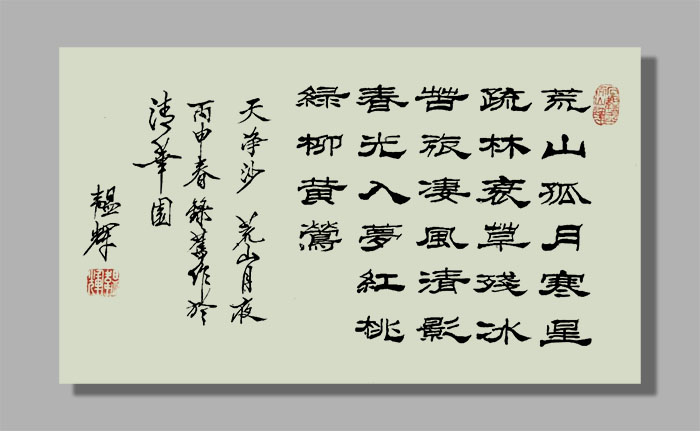 荒山孤月寒星
疏林衰草殘冰
苦旅淒風清影
春光入夢紅桃
綠柳黃鶯
天净沙 荒山月夜
丙申春錄舊作於
清華園
韞輝